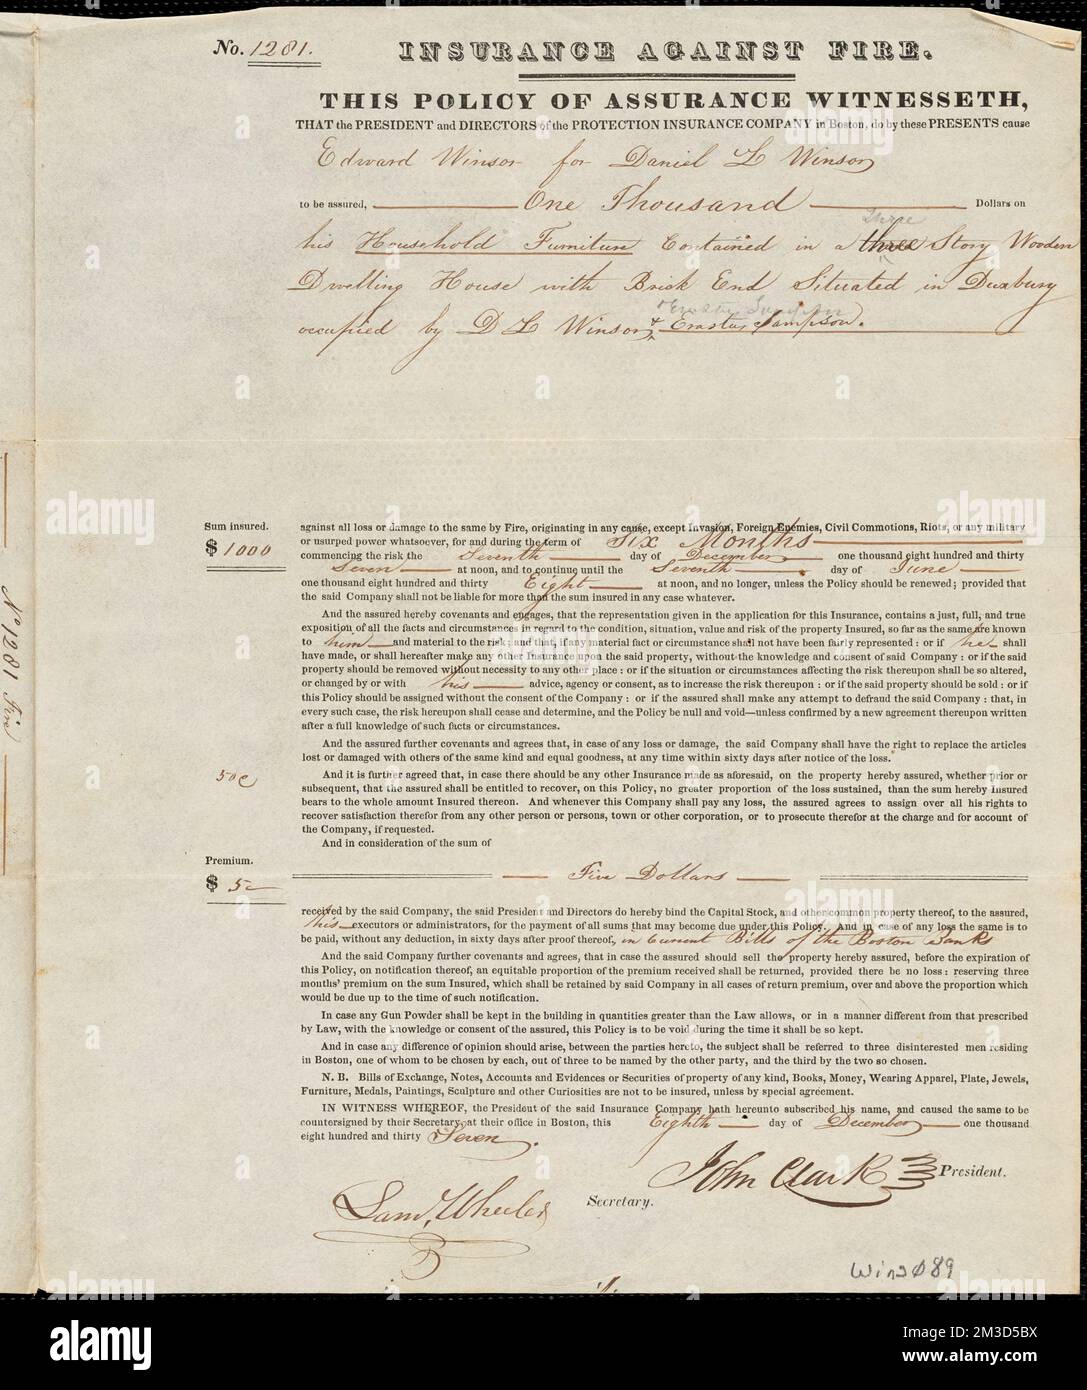 No. 1281.
INSURANCE AGAINST FIRE.
THIS POLICY OF ASSURANCE WITNESSETH,
THAT the PRESIDENT and DIRECTORS of the PROTECTION INSURANCE COMPANY in Boston, do by these PRESENTS cause
Edward Winsor for Daniel L Winsor
to be assured, One Thousand Dollars on
three
his Household Furniture Contained in a three Story Wooden
Dwelling House with Brick End Situated in Duxbury
Erastus Sampson
occupied by D L Winsor & Erastus Sampson.
Sum insured.
$ 1000
against all loss or damage to the same by Fire, originating in any cause, except Invasion, Foreign Enemies, Civil Commotions, Riots, or any military
or usurped power whatsoever, for and during the term of Six Months
commencing the risk the Seventh day of December one thousand eight hundred and thirty
Seven at noon, and to continue until the Seventh day of June
one thousand eight hundred and thirty Eight at noon, and no longer, unless the Policy should be renewed; provided that
the said Company shall not be liable for more than the sum insured in any case whatever.
And the assured hereby covenants and engages, that the representation given in the application for this Insurance, contains a just, full, and true
exposition of all the facts and circumstances in regard to the condition, situation, value and risk of the property Insured, so far as the same are known
to him and material to the risk; and that, if any material fact or circumstance shall not have been fairly represented: or if he shall
have made, or shall hereafter make any other Insurance upon the said property, without the knowledge and consent of said Company: or if the said
property should be removed without necessity to any other place: or if the situation or circumstances affecting the risk thereupon shall be so altered,
or changed by or with his advice, agency or consent, as to increase the risk thereupon: or if the said property should be sold: or if
this Policy should be assigned without the consent of the Company: or if the assured shall make any attempt to defraud the said Company: that, in
every such case, the risk hereupon shall cease and determine, and the Policy be null and void—unless confirmed by a new agreement thereupon written
after a full knowledge of such facts or circumstances.
And the assured further covenants and agrees that, in case of any loss or damage, the said Company shall have the right to replace the articles
lost or damaged with others of the same kind and equal goodness, at any time within sixty days after notice of the loss.
50c
And it is further agreed that, in case there should be any other Insurance made as aforesaid, on the property hereby assured, whether prior or
subsequent, that the assured shall be entitled to recover, on this Policy, no greater proportion of the loss sustained, than the sum hereby Insured
bears to the whole amount Insured thereon. And whenever this Company shall pay any loss, the assured agrees to assign over all his rights to
recover satisfaction therefor from any other person or persons, town or other corporation, or to prosecute therefor at the charge and for account of
the Company, if requested.
And in consideration of the sum of
Premium.
$ 5
Five Dollars
received by the said Company, the said President and Directors do hereby bind the Capital Stock, and other common property thereof, to the assured,
his executors or administrators, for the payment of all sums that may become due under this Policy. And in case of any loss the same is to
be paid, without any deduction, in sixty days after proof thereof, in Current Bills of the Boston Banks
And the said Company further covenants and agrees, that in case the assured should sell the property hereby assured, before the expiration of
this Policy, on notification thereof, an equitable proportion of the premium received shall be returned, provided there be no loss: reserving three
months' premium on the sum Insured, which shall be retained by said Company in all cases of return premium, over and above the proportion which
would be due up to the time of such notification.
In case any Gun Powder shall be kept in the building in quantities greater than the Law allows, or in a manner different from that prescribed
by Law, with the knowledge or consent of the assured, this Policy is to be void during the time it shall be so kept.
And in case any difference of opinion should arise, between the parties hereto, the subject shall be referred to three disinterested men residing
in Boston, one of whom to be chosen by each, out of three to be named by the other party, and the third by the two so chosen.
N. B. Bills of Exchange, Notes, Accounts and Evidences or Securities of property of any kind, Books, Money, Wearing Apparel, Plate, Jewels,
Furniture, Medals, Paintings, Sculpture and other Curiosities are not to be insured, unless by special agreement.
IN WITNESS WHEREOF, the President of the said Insurance Company hath hereunto subscribed his name, and caused the same to be
countersigned by their Secretary, at their office in Boston, this Eighth day of December one thousand
eight hundred and thirty Seven.
John Clark President.
Saml. Wheeler Secretary.
No 1281 Fire
alamy
a
Image ID: 2M3D5BX
www.alamy.com